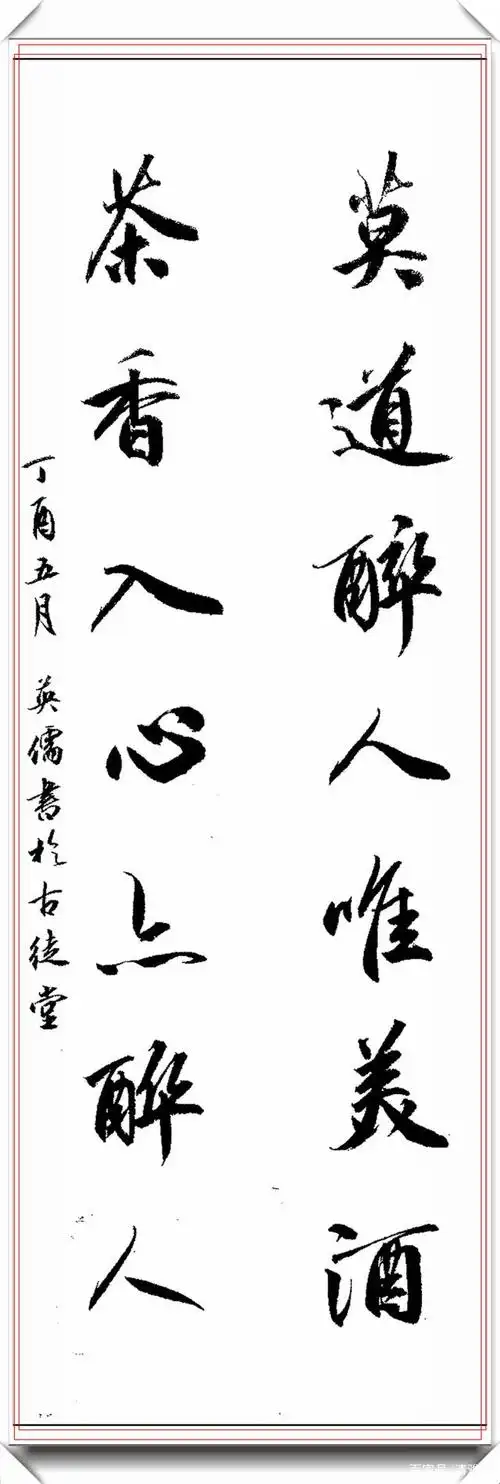 莫道醉人唯美酒
茶香入心亦醉人
丁酉五月 英儒書於古徒堂